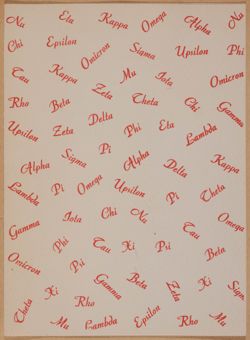 Nu Eta Kappa Omega Alpha Nu
Chi Epsilon Omicron Sigma Upsilon Phi
Tau Kappa Zeta Mu Iota
Rho Beta Theta Chi Gamma
Upsilon Zeta Delta Phi Eta Lambda
Alpha Sigma Pi Alpha Delta Kappa
Lambda Pi Omega Upsilon Pi Theta Omega
Gamma Iota Chi Nu
Phi Tau Xi Psi Tau
Omicron Psi Beta
Xi Gamma Beta Zeta Xi Sigma
Theta Rho
Mu Lambda Epsilon Rho Mu